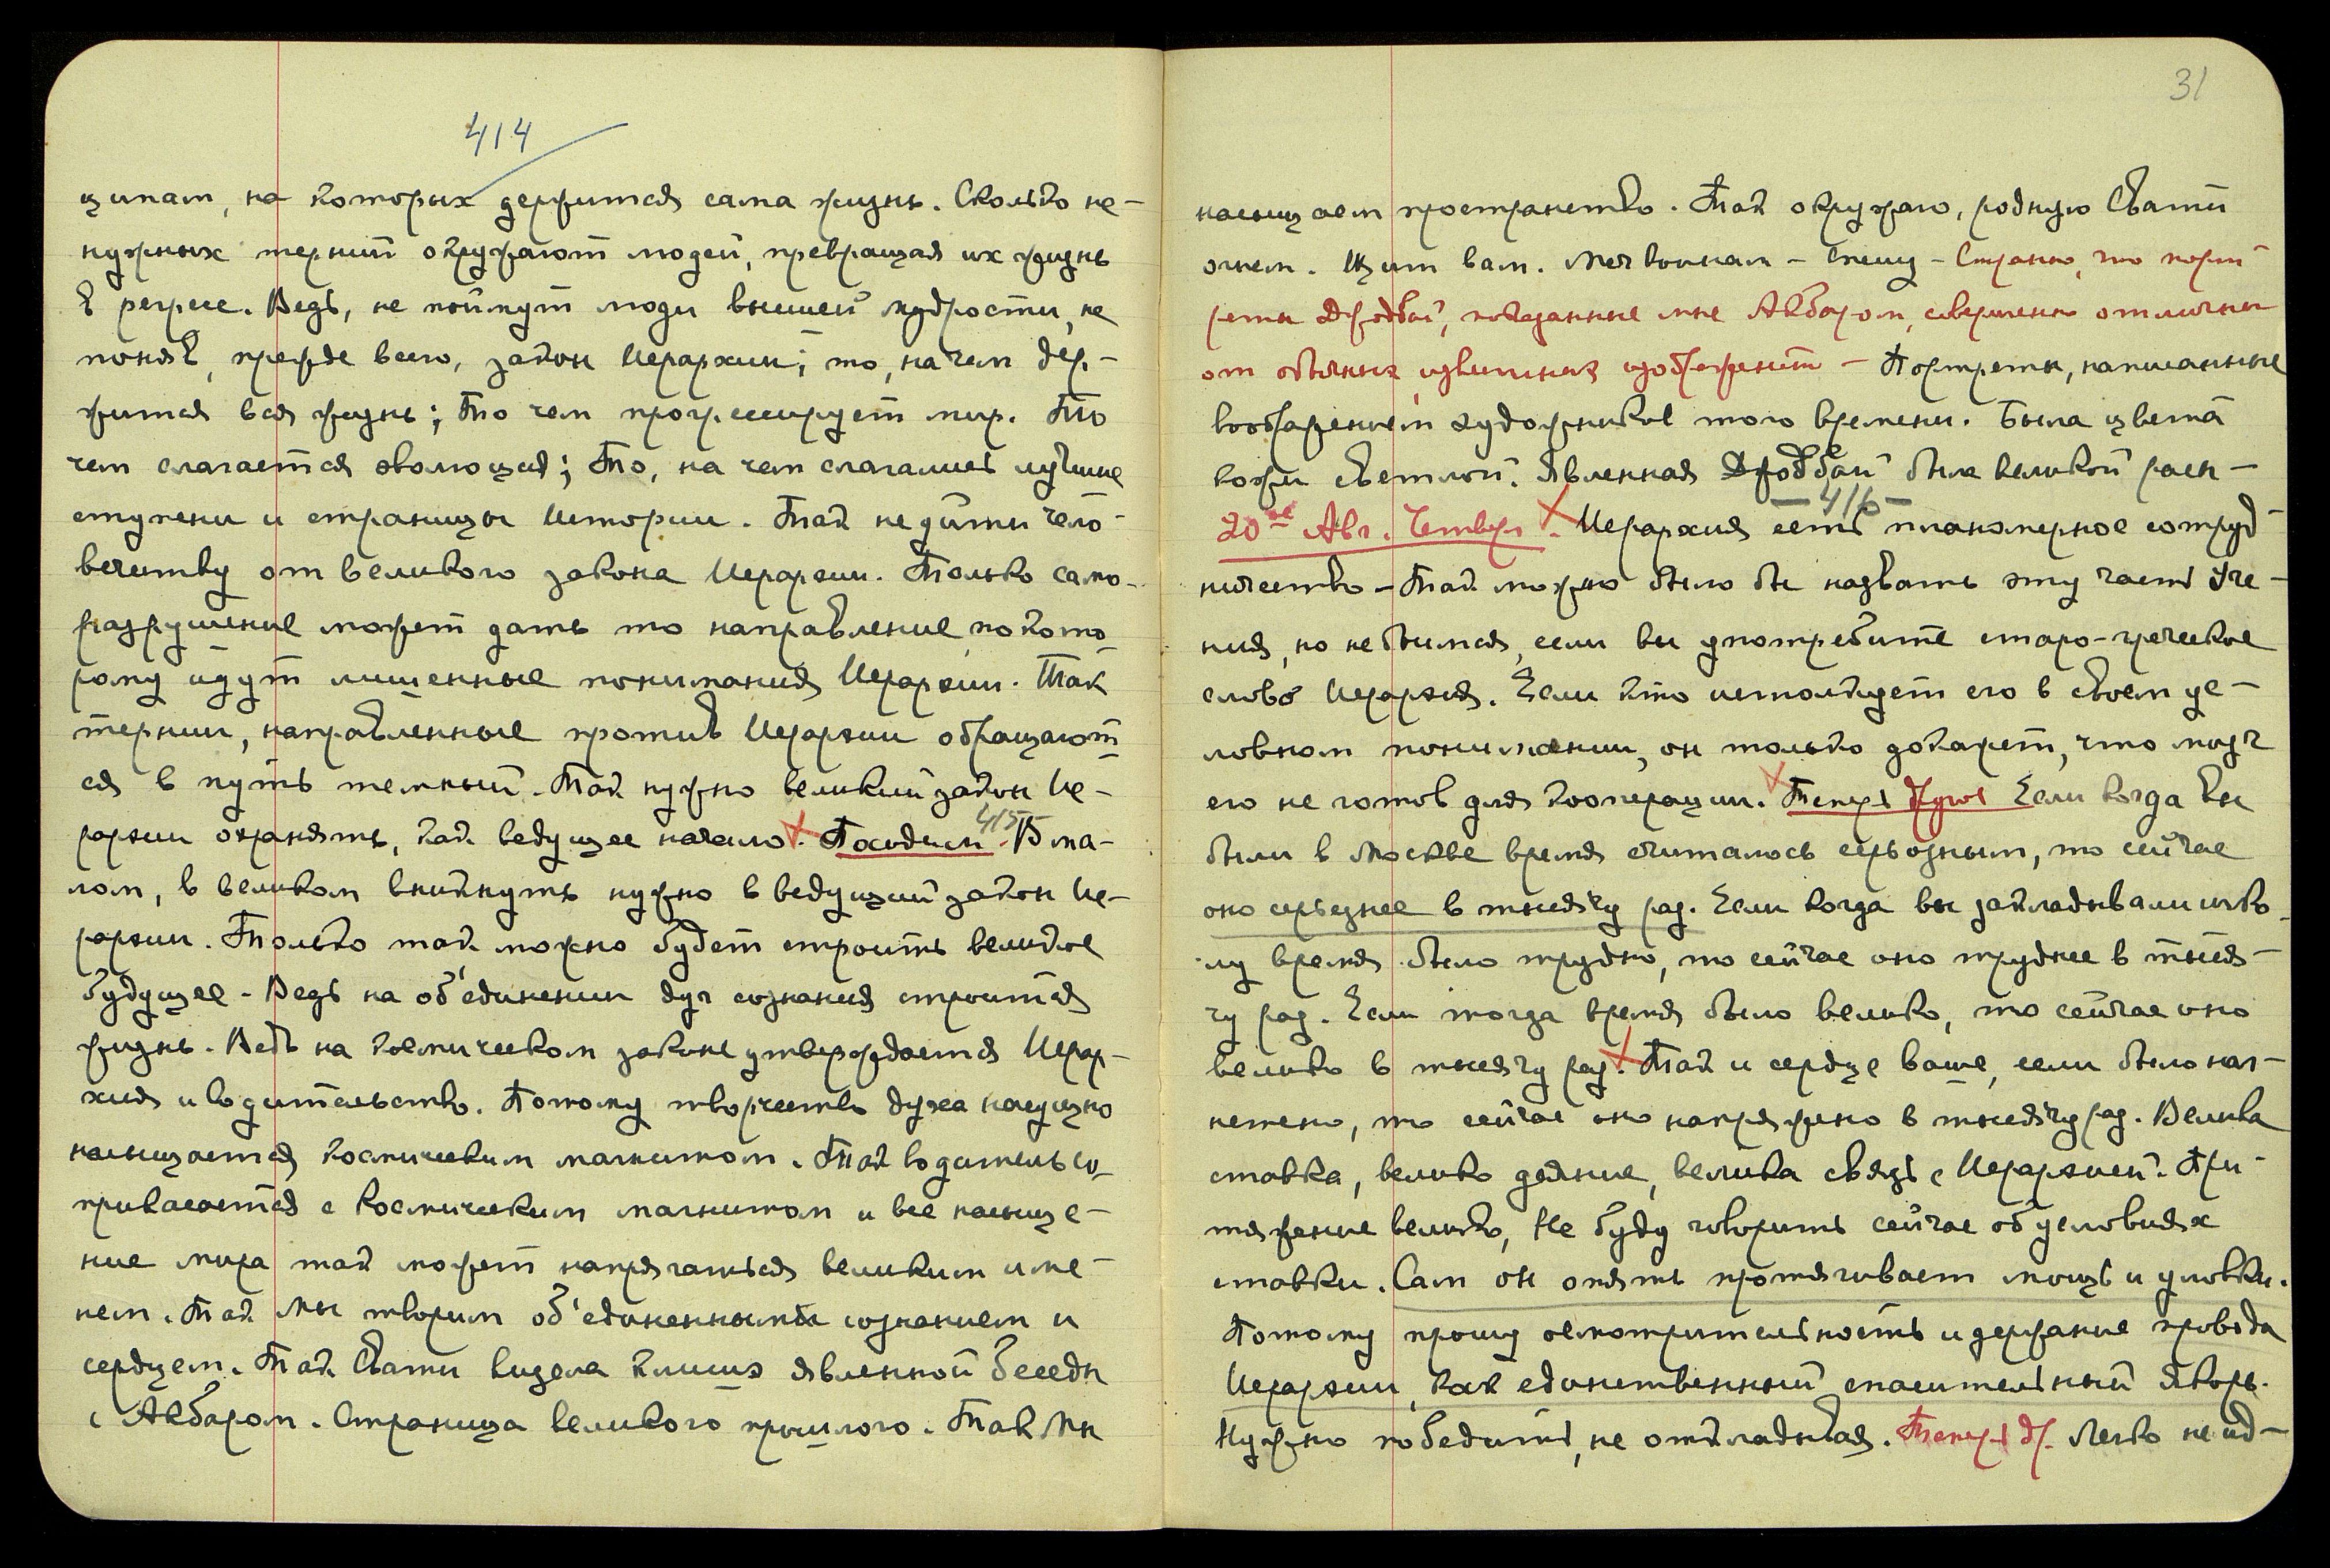 414
ципам, на которых держится сама жизнь. Сколько не-
нужных терний окружают людей, превращая их жизнь
в регресс. Ведь, не поймут люди высшей мудрости, не
поняв, прежде всего, закон Иерархии; то, на чем дер-
жится вся жизнь; То чем прогрессирует мир. То
чем слагается эволюция; То, на чем слагались лучшие
ступени и страницы Истории. Так не уйти чело-
вечеству от великого закона Иерархии. Только само-
разрушение может дать то направление, по кото-
рому идут лишенные понимания Иерархии. Так
тернии, направленные против Иерархии обращают-
ся в путь темный. Так нужно великий закон Ие-
рархии охранять, как ведущее начало. Посидим. 415 В ма-
лом, в великом вникнуть нужно в ведущий закон Ие-
рархии. Только так можно будет строить великое
будущее - Ведь на об'единении дуг сознания строится
жизнь. Ведь на космическом законе утверждается Иерар-
хия и водительство. Потому творчество духа насущно
насыщается космическим магнитом. Так водитель со-
прикасается с космическим магнитом и все насыще-
ние мира так может напрягаться великим име-
нем. Так Мы творим об'единенным сознанием и
сердцем. Так Свати видела клише явленной беседы
с Акбаром. Страница великого прошлого. Так Мы
31
насыщаем пространство. Так окружаю, родную Свати
огнем. Щит вам. Меч воинам - Спешу - Странно, что порт-
реты Джодбай, показанные мне Акбаром, совершенно отличны
от обычных, известных изображений - Портреты, написанные
воображением художников того времени. Была цвета
кожи светлой. Явленная Джодбай была великой расы -
20ое Авг. Четверг. - 416 - Иерархия есть планомерное сотруд-
ничество - Так можно было бы назвать эту часть Уче-
ния, но не боимся, если вы употребите старо-греческое
слово Иерархия. Если кто истолкует его в своем ус-
ловном понимании, он только докажет, что мозг
его не готов для кооперации. Теперь другое Если когда вы
были в Москве время считалось серьозным, то сейчас
оно серьезнее в тысячу раз. Если когда вы закладывали шко-
лу время было трудно, то сейчас оно труднее в тыся-
чу раз. Если тогда время было велико, то сейчас оно
велико в тысячу раз. Так и сердце ваше, если было наг-
нетено, то сейчас оно напряжено в тысячу раз. Велика
ставка, велико деяние, велика связь с Иерархией. При-
тяжение велико, Не буду говорить сейчас об условиях
ставки. Сам он опять протягивает мощь и уловки.
Потому прошу осмотрительность и держание провода
Иерархии, как единственный спасительный якорь.
Нужно победить, не откладывая. Теперь др. Легко не ид-